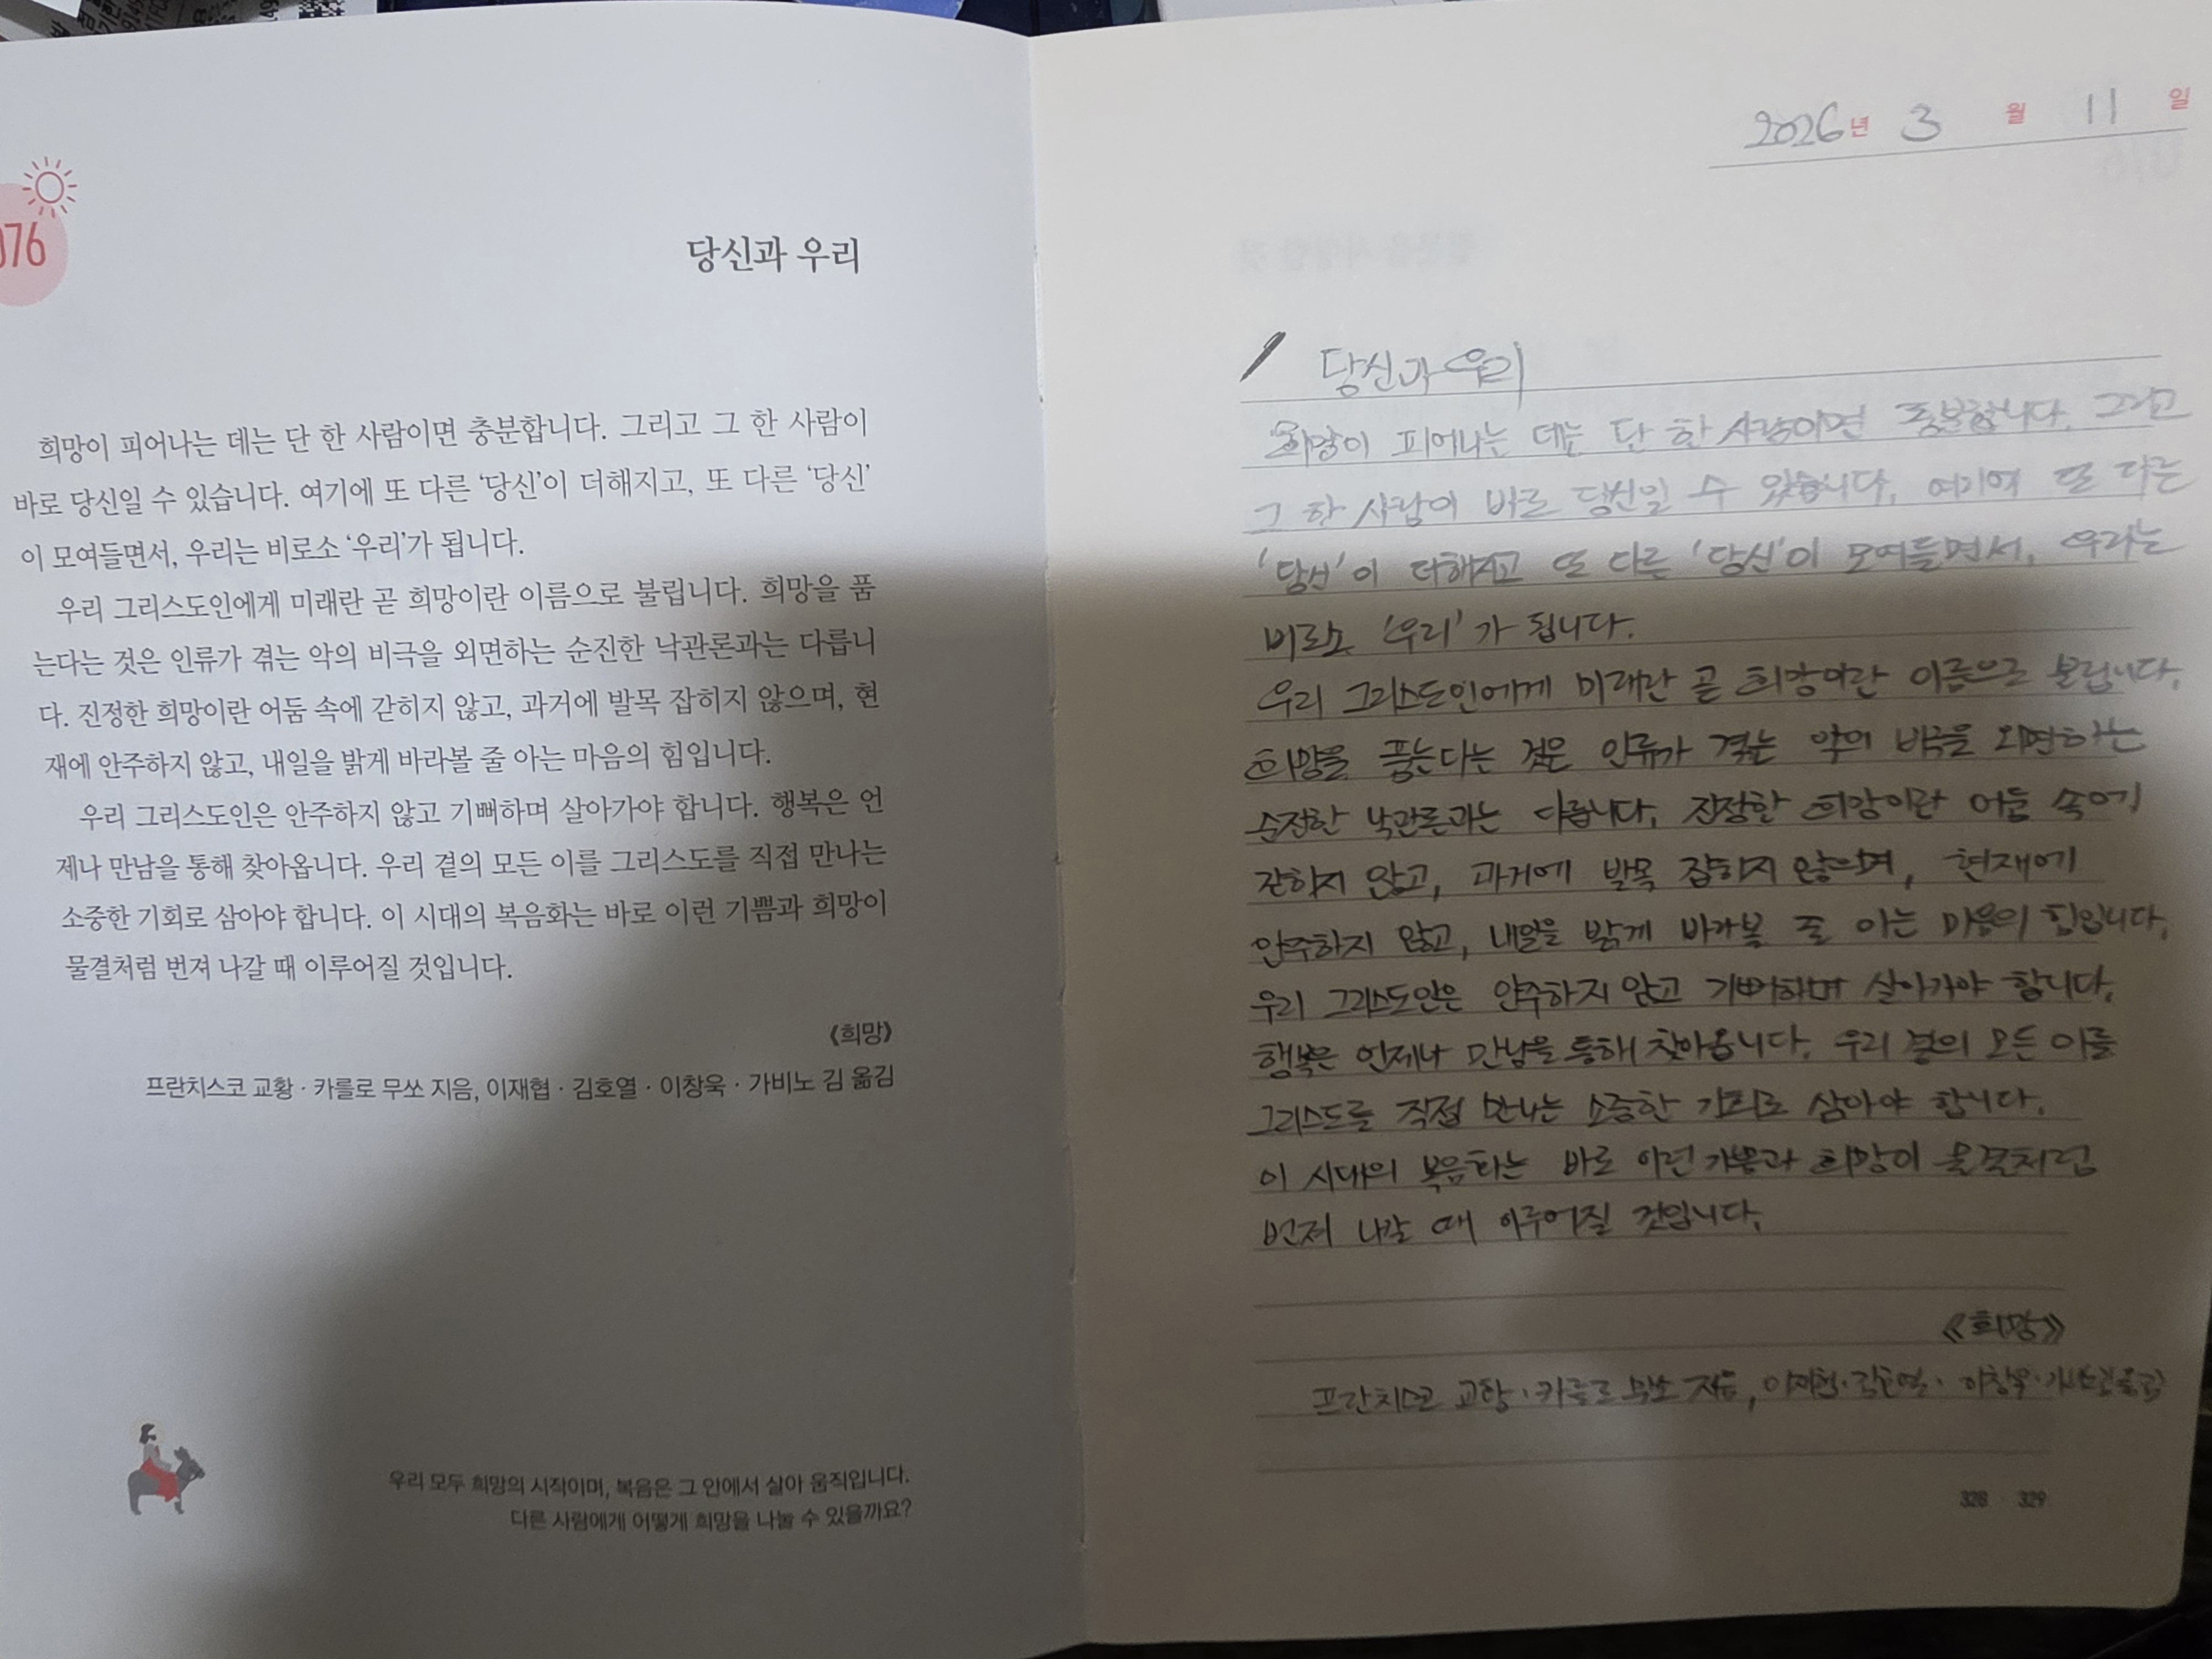 076
당신과 우리
희망이 피어나는 데는 단 한 사람이면 충분합니다. 그리고 그 한 사람이
바로 당신일 수 있습니다. 여기에 또 다른 ‘당신’이 더해지고, 또 다른 ‘당신’
이 모여들면서, 우리는 비로소 ‘우리’가 됩니다.
우리 그리스도인에게 미래란 곧 희망이란 이름으로 불립니다. 희망을 품
는다는 것은 인류가 겪는 악의 비극을 외면하는 순진한 낙관론과는 다릅니
다. 진정한 희망이란 어둠 속에 갇히지 않고, 과거에 발목 잡히지 않으며, 현
재에 안주하지 않고, 내일을 밝게 바라볼 줄 아는 마음의 힘입니다.
우리 그리스도인은 안주하지 않고 기뻐하며 살아가야 합니다. 행복은 언
제나 만남을 통해 찾아옵니다. 우리 곁의 모든 이를 그리스도를 직접 만나는
소중한 기회로 삼아야 합니다. 이 시대의 복음화는 바로 이런 기쁨과 희망이
물결처럼 번져 나갈 때 이루어질 것입니다.
《희망》
프란치스코 교황 · 카를로 무쏘 지음, 이재협 · 김호열 · 이창욱 · 가비노 김 옮김
우리 모두 희망의 시작이며, 복음은 그 안에서 살아 움직입니다.
다른 사람에게 어떻게 희망을 나눌 수 있을까요?
2026년 3월 11일
당신과 우리
희망이 피어나는 데는 단 한 사람이면 충분합니다. 그리고
그 한 사람이 바로 당신일 수 있습니다. 여기에 또 다른
‘당신’이 더해지고 또 다른 ‘당신’이 모여들면서, 우리는
비로소 ‘우리’가 됩니다.
우리 그리스도인에게 미래란 곧 희망이란 이름으로 불립니다.
희망을 품는다는 것은 인류가 겪는 악의 비극을 외면하는
순진한 낙관론과는 다릅니다. 진정한 희망이란 어둠 속에
갇히지 않고, 과거에 발목 잡히지 않으며, 현재에
안주하지 않고, 내일을 밝게 바라볼 줄 아는 마음의 힘입니다.
우리 그리스도인은 안주하지 않고 기뻐하며 살아가야 합니다.
행복은 언제나 만남을 통해 찾아옵니다. 우리 곁의 모든 이를
그리스도를 직접 만나는 소중한 기회로 삼아야 합니다.
이 시대의 복음화는 바로 이런 기쁨과 희망이 물결처럼
번져 나갈 때 이루어질 것입니다.
《희망》
프란치스코 교황 · 카를로 무쏘 지음, 이재협 · 김호열 · 이창욱 · 가비노 김 옮김
328 · 329